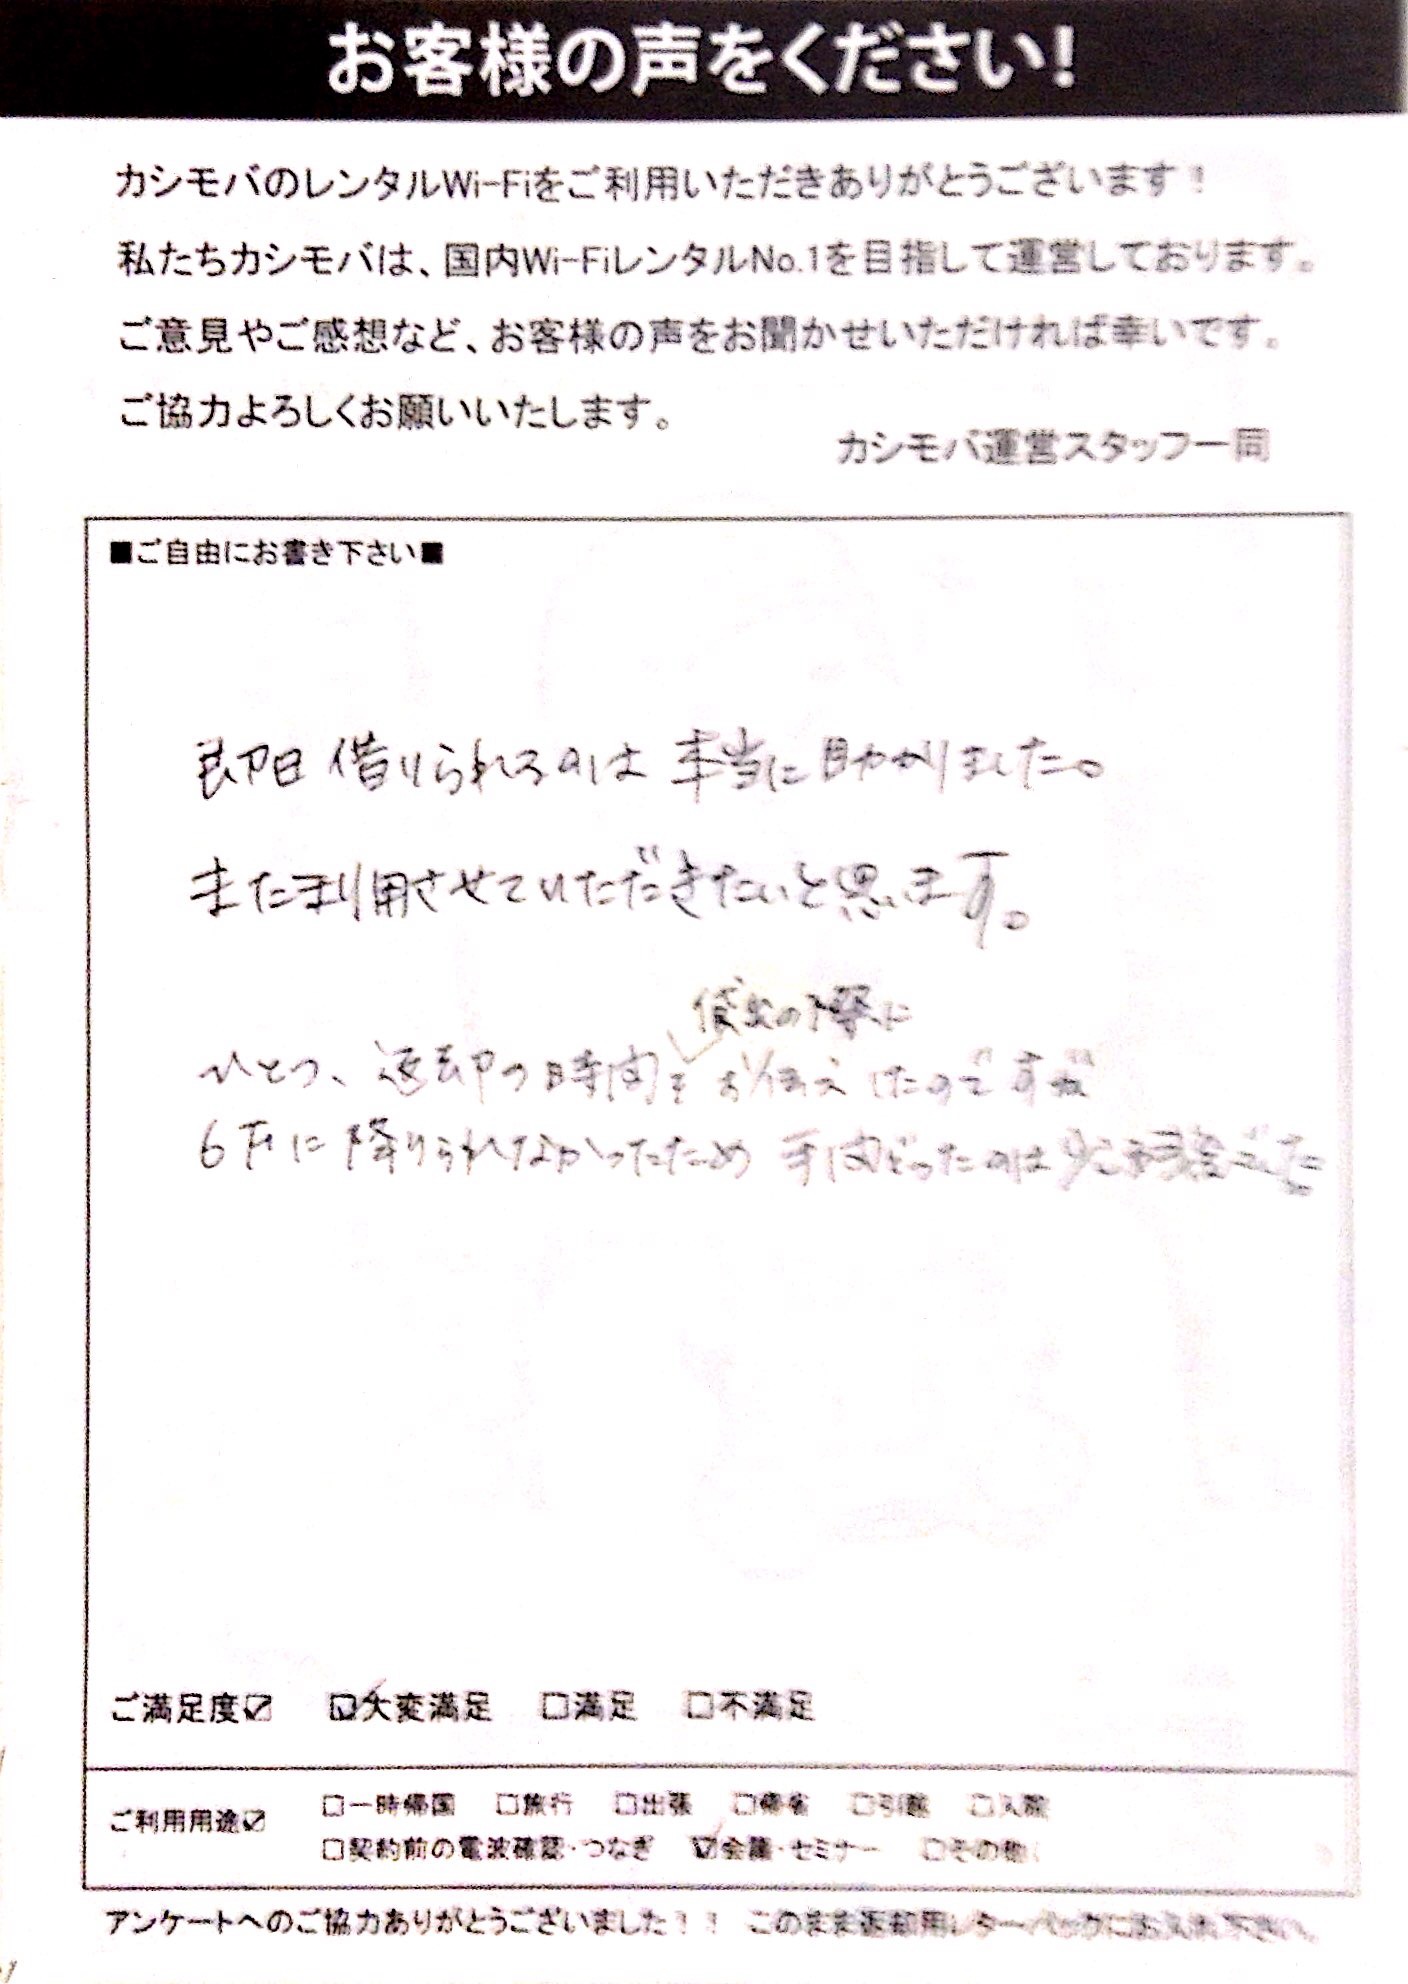 お客様の声をください!
カシモバのレンタルWi-Fiをご利用いただきありがとうございます！
私たちカシモバは、国内Wi-FiレンタルNo.1を目指して運営しております。
ご意見やご感想など、お客様の声をお聞かせいただければ幸いです。
ご協力よろしくお願いいたします。
カシモバ運営スタッフ一同
■ご自由にお書き下さい■
即日借りられるのは本当に助かりました。
また利用させていただきたいと思います。
貸出の際に
ひとつ、返却の時間をお伝えしたのですが
6Fに降りられなかったため手間どったのは少し残念でした
ご満足度☑ ☑大変満足 □満足 □不満足
ご利用用途☑ □一時帰国 □旅行 □出張 □帰省 □引越 □入院
□契約前の電波確認・つなぎ ☑会議・セミナー □その他(
アンケートへのご協力ありがとうございました！！ このまま返却用レターパックにお入れ下さい。